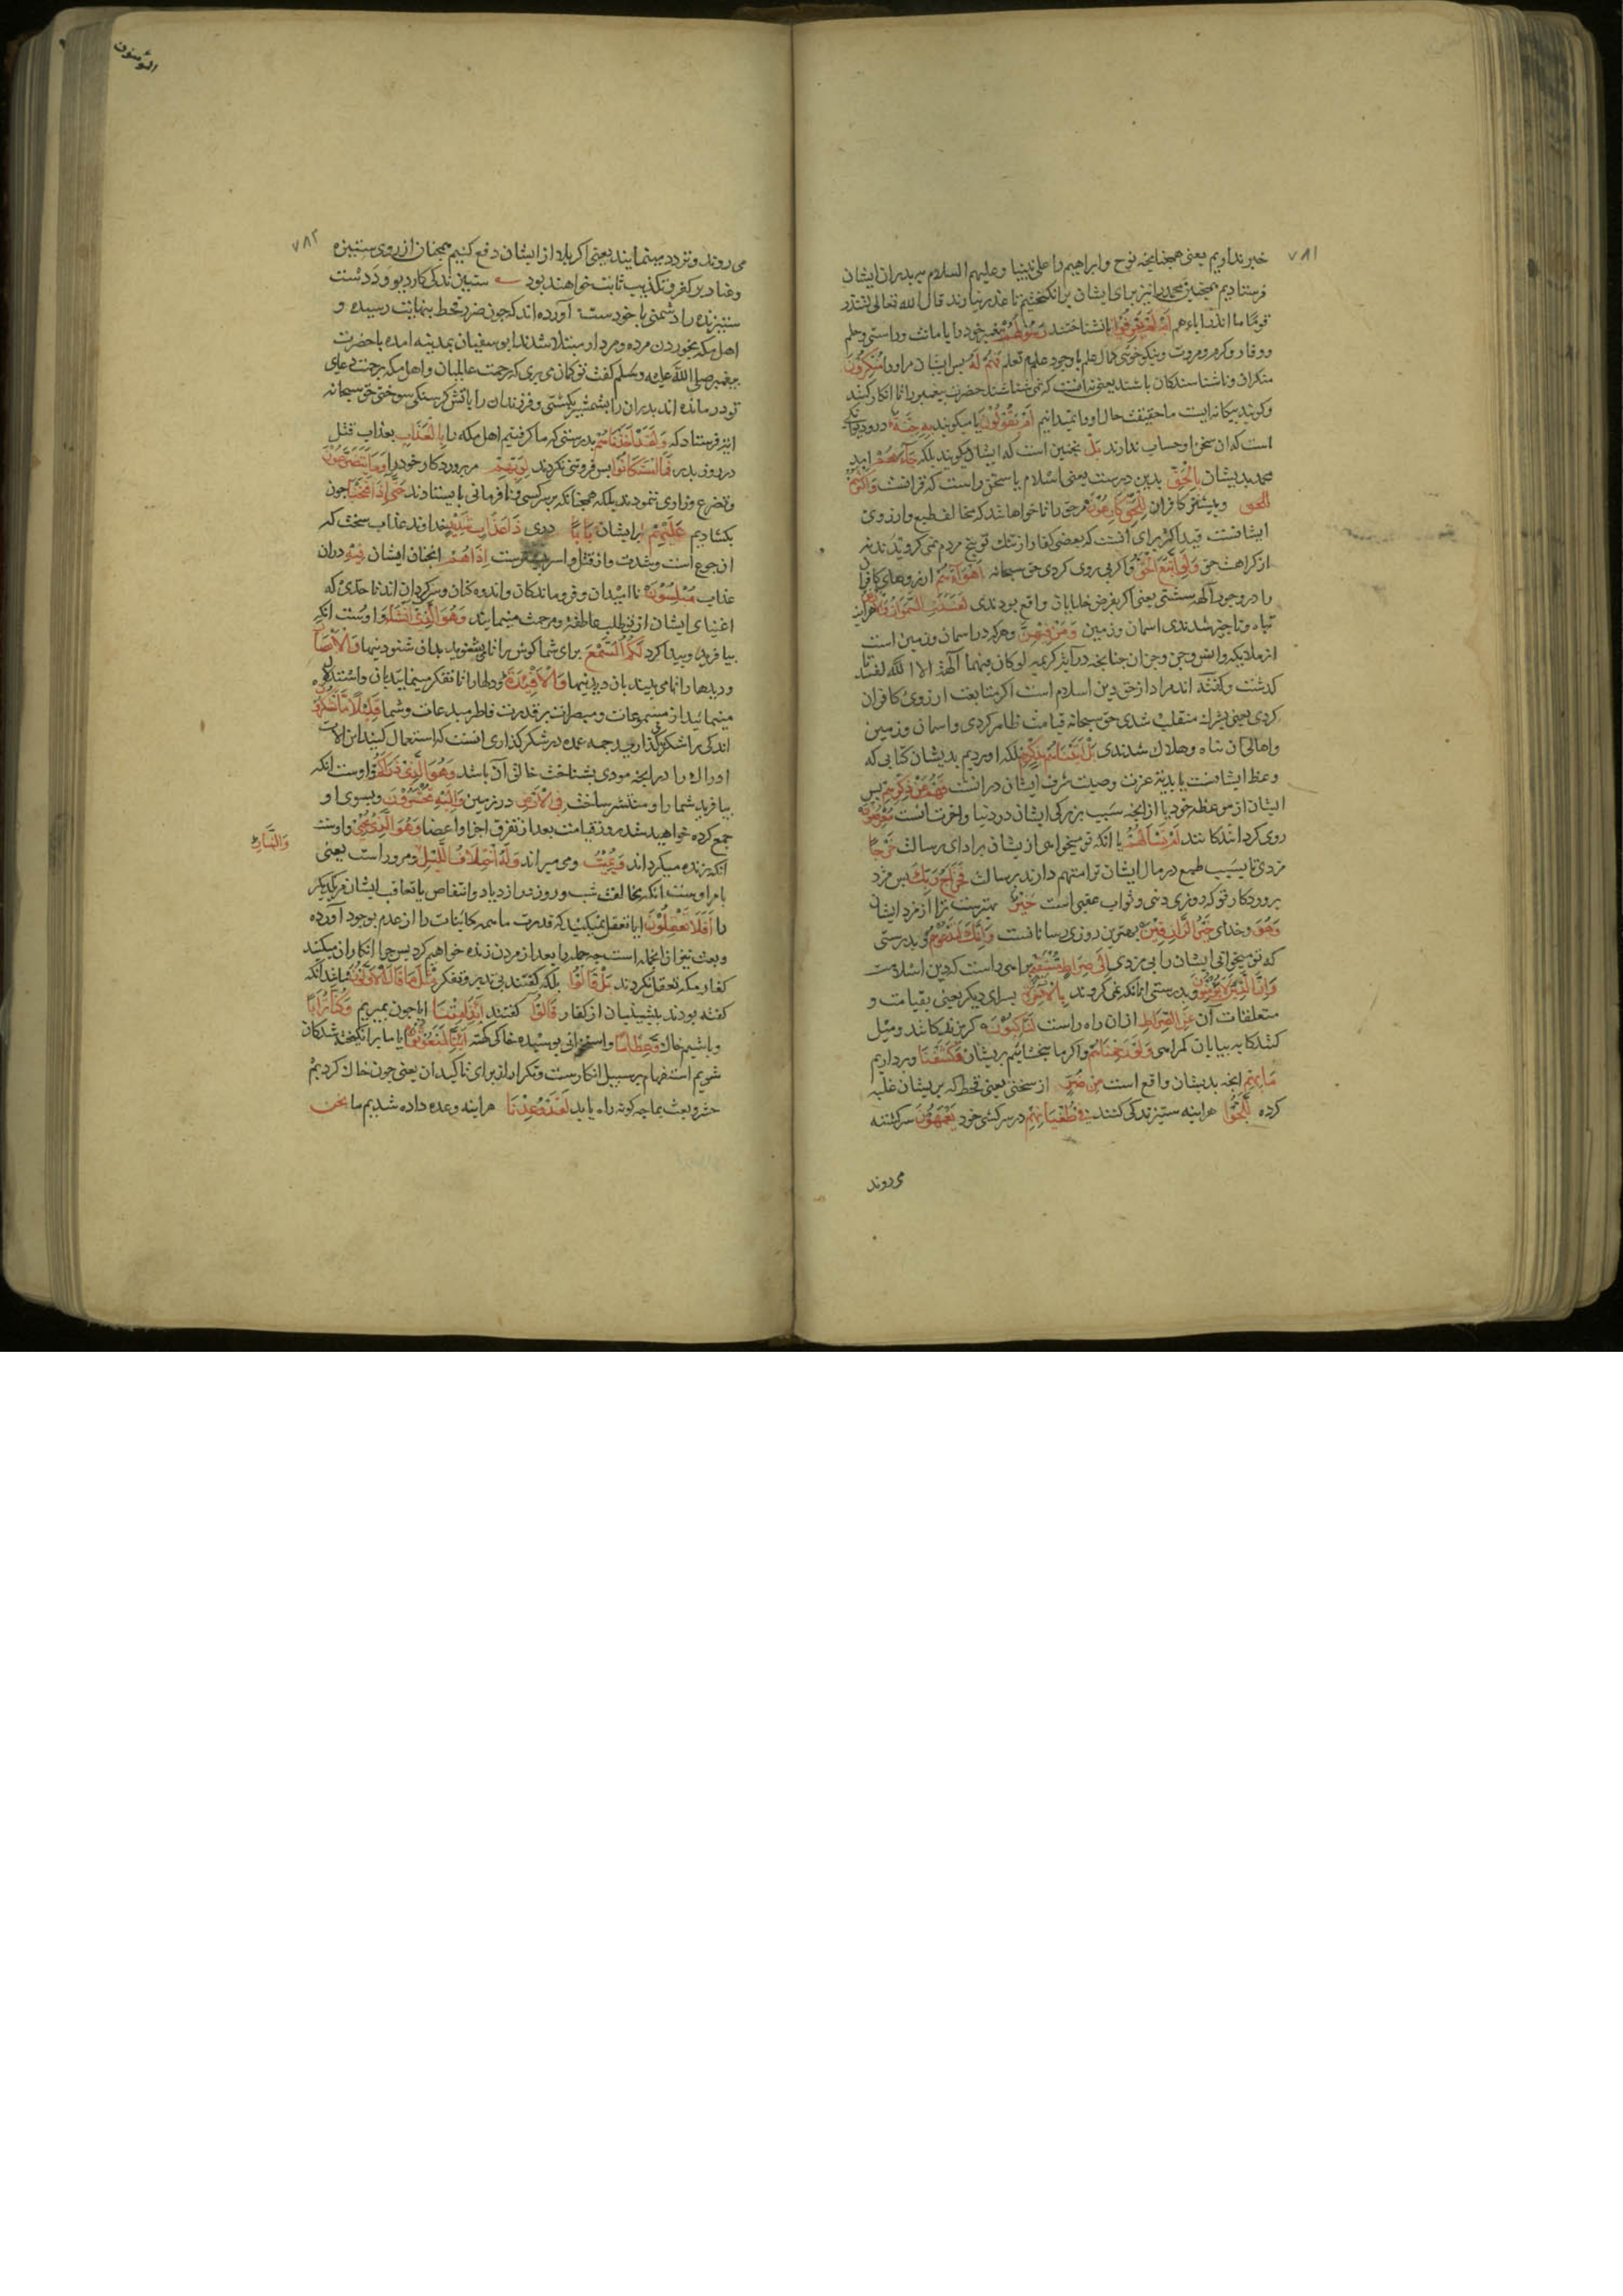 ٧٨١
خبر نداریم یعنی همچنانچه نوح وابراهیم را علی نبینا وعلیهم السلام به پدران ایشان
فرستادیم همچنین محمد را نیز برای ایشان برانگیختیم تا عذر نیارند قال الله تعالی لتنذر
قوما ما انذر اباءهم ام لم یعرفوا یا نشناختند رسولهم پیغمبر خود را با مانت وراستی وحلم
ووقار وکرم ومروت ونیکو خوئی کمال علم با وجود عدم تعلم فهم له پس ایشان مر اورا منکرون
منکران وناشناسندکان باشند یعنی نه انست که نمی شناسند حضرت پیغمبر را تا انکار کنند
وکویند بیکانه ایست ما حقیقت حال اورا نمیدانیم ام یقولون یا میکویند به جنة درو دیوانکی
است که ان سخن او حساب ندارند بل نچنین است که ایشان میکویند بلکه جاءهم امد
محمد بدیشان بالحق بدین درست یعنی اسلام یا سخن راست که قرانست واکثرهم
للحق وبیشتر کافران للحق کارهون مر حق را ناخواهانند که مخالف طبع وارزوی
ایشانست قید اکثر برای انست که بعضی کفار از ننک توبیخ مردم نمی کرویدند نه
از کراهت حق ولو اتبع الحق واکر پی روی کردی حق سبحانه اهواءهم ارزوهای کافران
را در وجود آلهه شتی یعنی اکر بفرض خدایان واقع بودندی لفسدت السموات والارض هر اینه
تباه وناچیز شدندی اسمان وزمین ومن فیهن وهرکه در اسمان وزمین است
از ملائکه وانس وجن وجز ان چنانچه در آیه کریمه لو کان فیهما آلهة الا الله لفسدتا
کذشت وکفته اند مراد از حق دین اسلام است اکر متابعت ارزوی کافران
کردی یعنی بشرک منقلب شدی حق سبحانه قیامت ظاهر کردی واسمان وزمین
واهالی ان تباه وهلاک شدندی بل اتیناهم بذکرهم بلکه اوردیم بدیشان کتابی که
وعظ ایشانست یا بدیه عزت وصیت شرف ایشان در انست فهم عن ذکرهم پس
ایشان از موعظه خود یا از انچه سبب بزرکی ایشان در دنیا واخرت انست معرضون
روی کردانندکانند ام تسألهم یا انکه تو میخواهی از یشان بر ادای رسالت خرجا
مزدی تا بسبب طمع در مال ایشان ترا متهم دارند بر رسالت فخراج ربک پس مزد
پروردکار تو که روزی دنیی وثواب عقبی است خیر بهترست ترا از مزد ایشان
وهو وخدای خیر الرازقین بهترین روزی رسانانست وانک لتدعوهم وبدرستی
که تو میخوانی ایشان را بی مزدی الی صراط مستقیم براهی راست که دین اسلامست
وان الذین لا یؤمنون وبدرستی انانکه نمی کروند بالاخرة بسرای دیکر یعنی بقیامت و
متعلقات آن عن الصراط از ان راه راست لناکبون کریزندکانند ومیل
کنندکان به بیابان کمراهی ولو رحمناهم واکر ما ببخشائیم بریشان وکشفنا وبرداریم
ما بهم انچه بدیشان واقع است من ضر از سختی یعنی قحط که بریشان غلبه
کرده للجوا هر اینه ستیزندکی کنند فی طغیانهم در سرکشی خود یعمهون سرکشته
می روند
المؤمنون
٧٨٢
می روند وتردد مینمایند یعنی اکر بلا از ایشان دفع کنیم همچنان از روی ستیزه
وعناد بر کفر وتکذیب ثابت خواهند بود ستیزندکی کار دیو وددست
ستیزنده را دشمنی با خودست آورده اند که چون ضرر قحط بنهایت رسیده و
اهل مکه بخوردن مرده ومردار مبتلا شدند ابو سفیان بمدینه امده با حضرت
پیغمبر صلی الله علیه وسلم کفت تو کمان می بری که رحمت عالمیان واهل مکه برحمت دعای
تو درمانده اند پدران را بشمشیر بکشتی وفرزندان را باتش کرسنکی سوختی حق سبحانه
ایه فرستاد که ولقد اخذناهم بدرستی که ما کرفتیم اهل مکه را بالعذاب بعذاب قتل
در روز بدر فما استکانوا پس فروتنی نکردند لربهم مر پروردکار خود را وما یتضرعون
وتضرع وزاری ننمودند بلکه همچنانکه بر سرکشی ونافرمانی بایستادند حتی اذا فتحنا چون
بکشادیم علیهم بر ایشان بابا دری ذا عذاب شدید خداوند عذاب سخت که
ان جوع است وشدت واز قتل واسر سخترست اذا هم انچنان ایشان فیه در ان
عذاب مبلسون نا امیدان وفرو ماندکان واندوه کنان وسرکردان اند تا حدی که
اغنیای ایشان از تو طلب عاطفة ومرحمت مینمایند وهو الذی انشأ واوست انکه
بیافرید وپیدا کرد لکم السمع برای شما کوش را تا بشنوید بدان شنودنیها والابصار
ودیدها را تا می بینید بان دیدنیها والافئدة ودلها را تا تفکر مینمایید بان واستدلال
مینمایید از مسموعات ومبصرات بر قدرت فاطر مبدعات وشما قلیلا ما تشکرون
اندکی را شکر کذارید چه عمده در شکر کذاری انست که استعمال کنید این آلات
ادراک را در انچه مودی بشناخت خالق آن باشد وهو الذی ذرأکم واوست انکه
بیافرید شما را ومنتشر ساخت فی الارض در زمین والیه تحشرون وبسوی او
جمع کرده خواهید شد روز قیامت بعد از تفرق اجزا واعضا وهو الذی یحیی واوست
آنکه زنده میکرداند ویمیت ومی میراند وله اختلاف اللیل ومر وراست یعنی
والنهار
بامر اوست انکه مخالفت شب وروز در ازدیاد وانتقاص یا تعاقب ایشان مر یکدیکر
را افلا تعقلون ایا تعقل نمیکنید که قدرت ما همه کائنات را از عدم بوجود آورده
وبعث نیز از انجمله است چه جمله را بعد از مردن زنده خواهم کرد پس چرا انکار ان میکنید
کفار مکه تعقل نکردند بل قالوا بلکه کفتند بی تدبر وتفکر مثل ما قال الاولون مانند انکه
کفته بودند پیشینیان از کفار قالوا کفتند ائذا متنا ایا چون بمیریم وکنا ترابا
وباشیم خاک وعظاما واستخوانی پوسیده خاکی کشته ائنا لمبعوثون ایا ما برانکیخته شدکان
شویم استفهام بر سبیل انکارست وتکرار از برای تاکید ان یعنی چون خاک کردیم
حشر وبعث بما چه کونه راه یابد لقد وعدنا هراینه وعده داده شدیم ما نحن